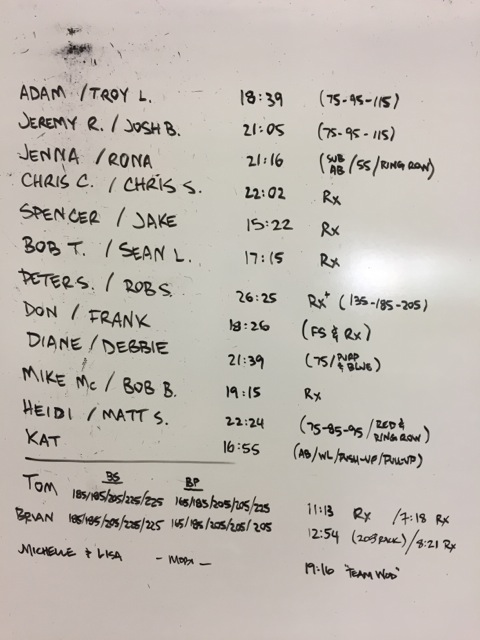 ADAM / TROY L. 18:39 (75-95-115)
JEREMY R. / JOSH B. 21:05 (75-95-115)
JENNA / RONA 21:16 (SUB AB /55/RING ROW)
CHRIS C. / CHRIS S. 22:02 Rx
SPENCER / JAKE 15:22 Rx
BOB T. / SEAN L. 17:15 Rx
PETER S. / ROB S. 26:25 Rx+ (135-185-205)
DON / FRANK 18:26 (FS & Rx)
DIANE / DEBBIE 21:39 (75/PURP & BLUE)
MIKE MC / BOB B. 19:15 Rx
HEIDI / MATT S. 22:24 (75-85-95/RED & RING ROW)
KAT 16:55 (AB/WL/PUSH-UP/PULL-UP)
BS BP
TOM 185/195/205/225/225 165/185/205/205/225 11:13 Rx /7:18 Rx
BRIAN 185/195/205/225/225 165/185/205/205/205 12:54 /8:21 Rx
MICHELLE & LISA 19:16 "TEAM WOD"